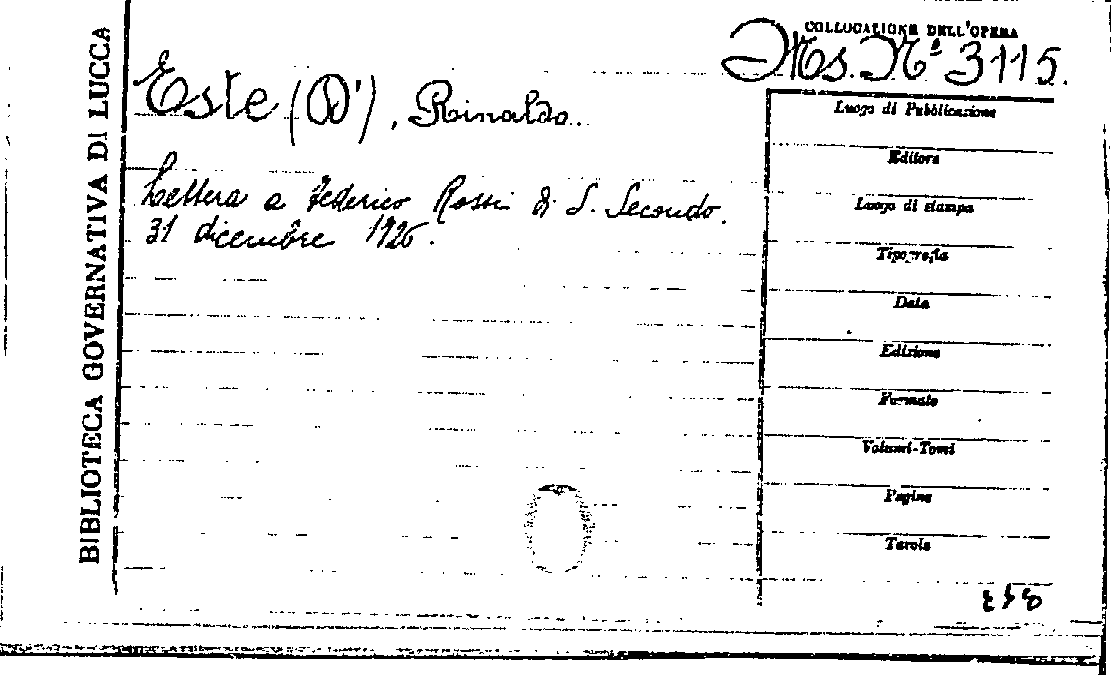 BIBLIOTECA GOVERNATIVA DI LUCCA
COLLOCAZIONE DELL'OPERA
Ms. Nº 3115.
Este (D'), Rinaldo.
Lettera a Federico Rossi di S. Secondo.
31 dicembre 1926.
Luogo di Pubblicazione
Editore
Luogo di stampa
Tipografia
Data
Edizione
Formato
Volumi-Tomi
Pagine
Tavole